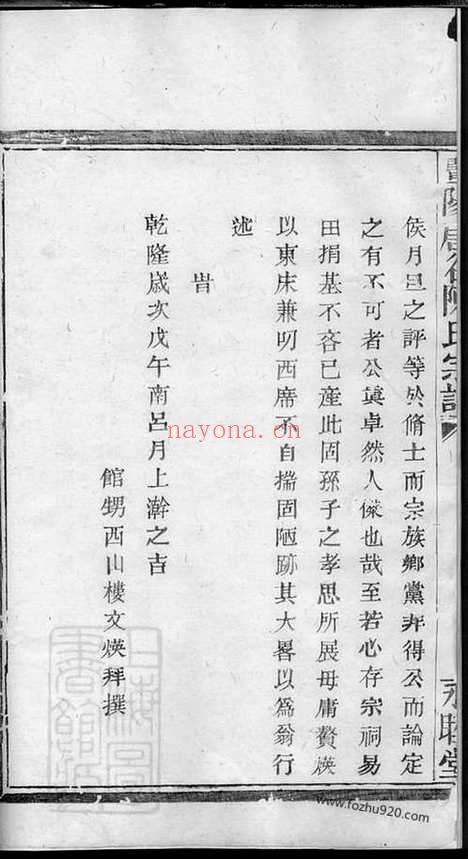 侯月旦之評等於脩士而宗族鄉黨非得公而論定
之有不可者公眞卓然人傑也哉至若心存宗祠易
田捐基不吝已產此固孫子之孝思所展毋庸贅煐
以東床兼叨西席不自揣固陋跡其大畧以爲翁行
述
旹
乾隆歲次戊午南呂月上澣之吉
館甥西山樓文煐拜撰
陳氏宗譜
nayona.cn
www.fozhu920.com